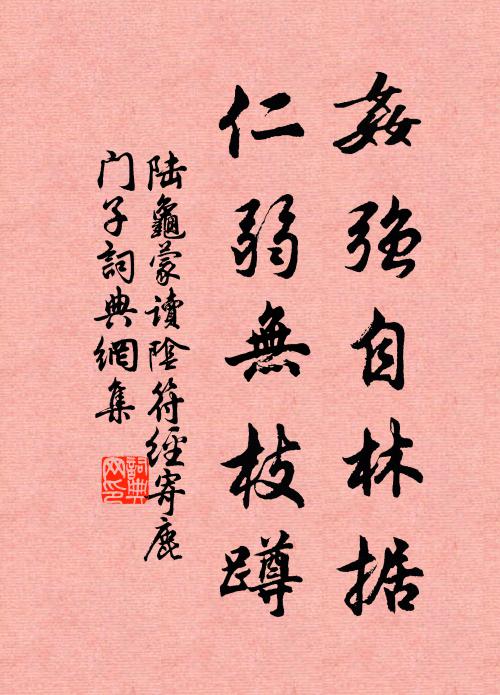 姦強自林据
仁弱無枝蹲
陆龜蒙读陰符經寄鹿
门子詞典網集
詞典
网印